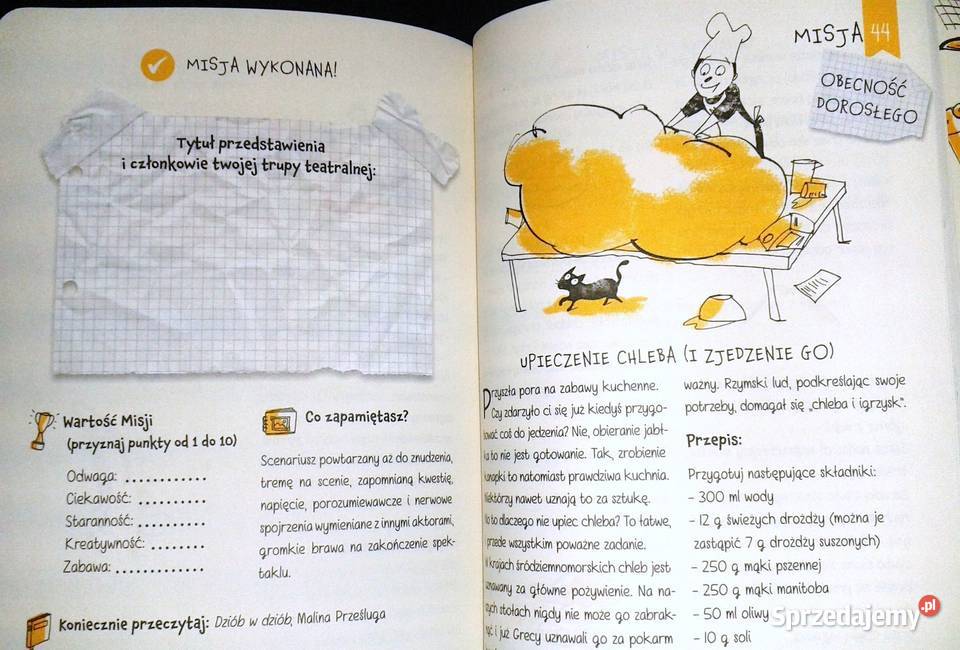 MISJA WYKONANA!
Tytuł przedstawienia
i członkowie twojej trupy teatralnej:
Wartość Misji
(przyznaj punkty od 1 do 10)
Odwaga: .............
Ciekawość: ..........
Staranność: ..........
Kreatywność: ........
Zabawa: .............
Co zapamiętasz?
Scenariusz powtarzany aż do znudzenia,
tremę na scenie, zapomnianą kwestię,
napięcie, porozumiewawcze i nerwowe
spojrzenia wymieniane z innymi aktorami,
gromkie brawa na zakończenie spek-
taklu.
Koniecznie przeczytaj: Dziób w dziób, Malina Prześluga
MISJA 44
OBECNOŚĆ
DOROSŁEGO
UPIECZENIE CHLEBA (I ZJEDZENIE GO)
Przyszła pora na zabawy kuchenne.
Czy zdarzyło ci się już kiedyś przygo-
tować coś do jedzenia? Nie, obieranie jabł-
ka to nie jest gotowanie. Tak, zrobienie
kanapki to natomiast prawdziwa kuchnia.
Niektórzy nawet uznają to za sztukę.
No to dlaczego nie upiec chleba? To łatwe,
przede wszystkim poważne zadanie.
W krajach śródziemnomorskich chleb jest
uznawany za główne pożywienie. Na na-
szych stołach nigdy nie może go zabrak-
nąć i już Grecy uznawali go za pokarm
ważny. Rzymski lud, podkreślając swoje
potrzeby, domagał się „chleba i igrzysk".
Przepis:
Przygotuj następujące składniki:
– 300 ml wody
– 12 g świeżych drożdży (można je
zastąpić 7 g drożdży suszonych)
– 250 g mąki pszennej
– 250 g mąki manitoba
– 50 ml oliwy
– 10 g soli
Sprzedajemy.pl